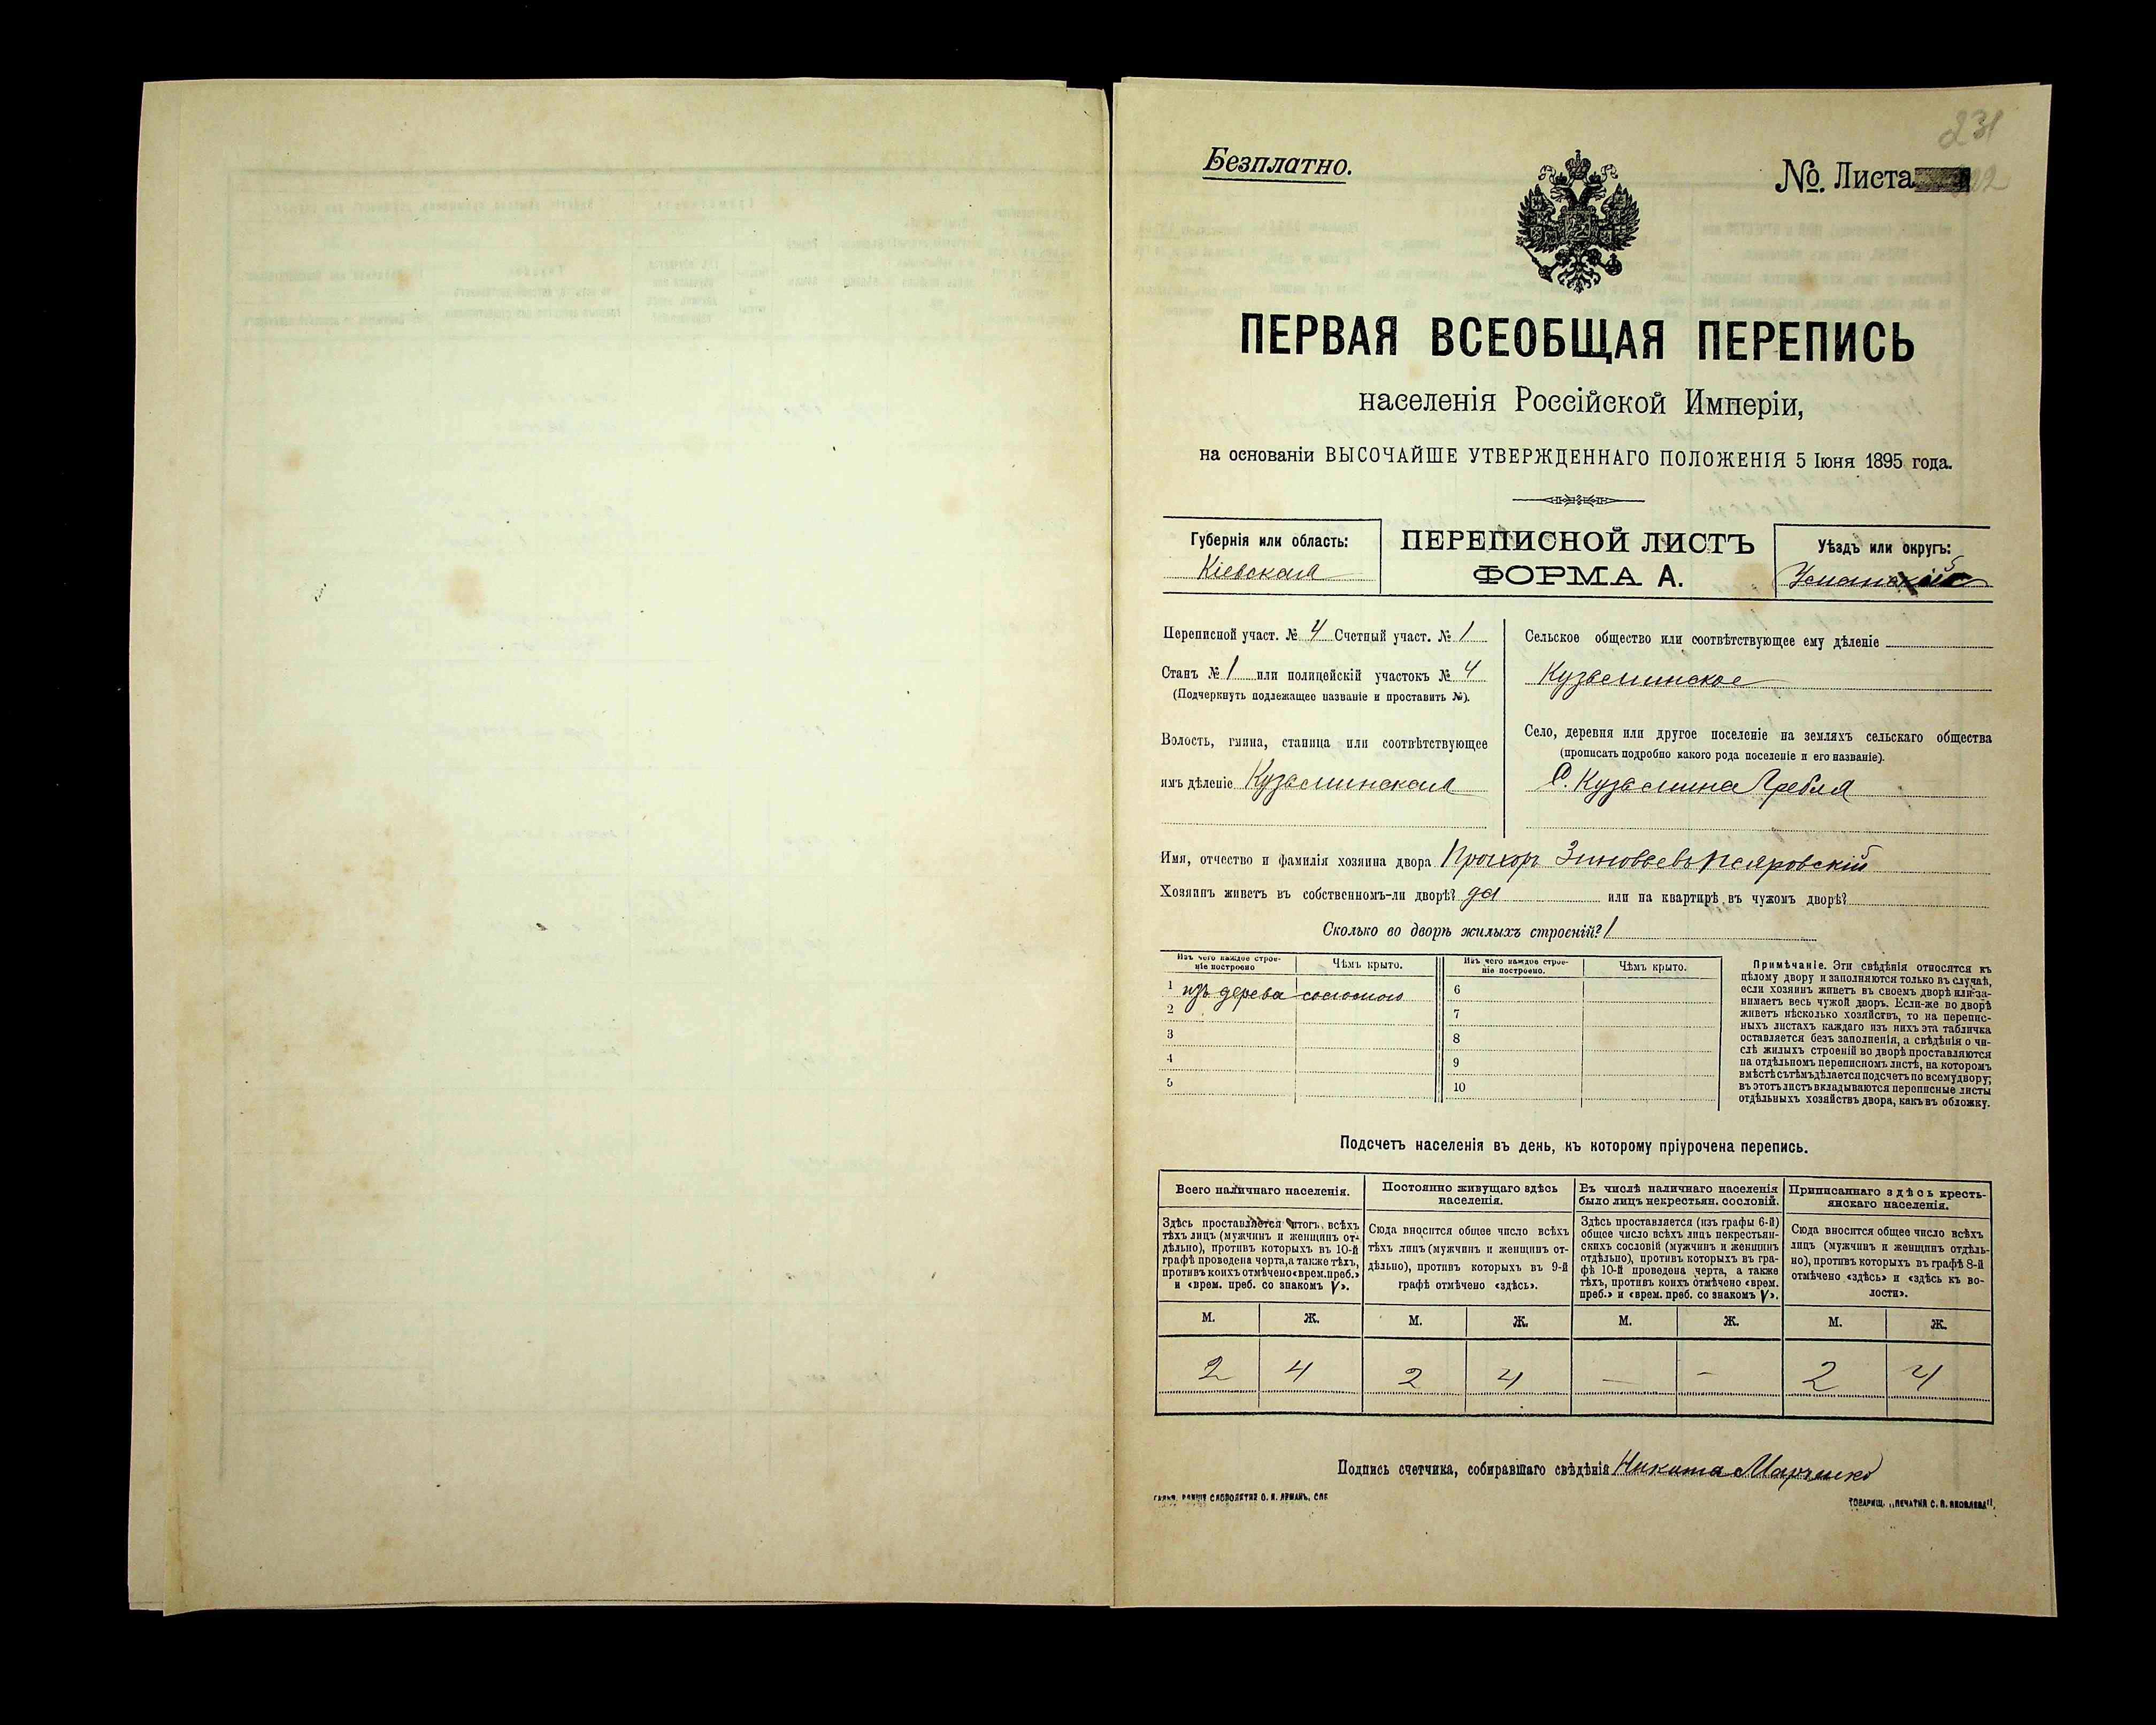 231
Безплатно.
№. Листа
ПЕРВАЯ ВСЕОБЩАЯ ПЕРЕПИСЬ
населенія Россійской Имперіи,
на основаніи ВЫСОЧАЙШЕ УТВЕРЖДЕННАГО ПОЛОЖЕНІЯ 5 Іюня 1895 года.
Губернія или область:
Кіевская
ПЕРЕПИСНОЙ ЛИСТЪ
ФОРМА А.
Уѣздъ или округъ:
Уманскій
Переписной участ. № 4 Счетный участ. № 1
Станъ № 1 или полицейскій участокъ № 4
(Подчеркнуть подлежащее названіе и проставить №).
Волость, гмина, станица или соотвѣтствующее
имъ дѣленіе Кузьминская
Сельское общество или соотвѣтствующее ему дѣленіе
Кузьминское
Село, деревня или другое поселеніе на земляхъ сельскаго общества
(прописать подробно какого рода поселеніе и его названіе).
С. Кузьмина Гребля
Имя, отчество и фамилія хозяина двора Прохоръ Зиновьевъ
Хозяинъ живетъ въ собственномъ-ли дворѣ? да или на квартирѣ въ чужомъ дворѣ?
Сколько во дворѣ жилыхъ строеній? 1
Изъ чего каждое строе-
ніе построено
Чѣмъ крыто.
Изъ чего каждое строе-
ніе построено.
Чѣмъ крыто.
1 изъ дерева соломою
2
3
4
5
6
7
8
9
10
Примѣчаніе. Эти свѣдѣнія относятся къ
цѣлому двору и заполняются только въ случаѣ,
если хозяинъ живетъ въ своемъ дворѣ или за-
нимаетъ весь чужой дворъ. Если-же во дворѣ
живетъ нѣсколько хозяйствъ, то на перепис-
ныхъ листахъ каждаго изъ нихъ эта табличка
оставляется безъ заполненія, а свѣдѣнія о чи-
слѣ жилыхъ строеній во дворѣ проставляются
на отдѣльномъ переписномъ листѣ, на которомъ
вмѣстѣ съ тѣмъ дѣлается подсчетъ по всему двору;
въ этотъ листъ вкладываются переписные листы
отдѣльныхъ хозяйствъ двора, какъ въ обложку.
Подсчетъ населенія въ день, къ которому пріурочена перепись.
Всего наличнаго населенія.
Здѣсь проставляется итогъ всѣхъ
тѣхъ лицъ (мужчинъ и женщинъ от-
дѣльно), противъ которыхъ въ 10-й
графѣ проведена черта, а также тѣхъ,
противъ коихъ отмѣчено «врем. преб.»
и «врем. преб. со знакомъ V».
Постоянно живущаго здѣсь
населенія.
Сюда вносится общее число всѣхъ
тѣхъ лицъ (мужчинъ и женщинъ от-
дѣльно), противъ которыхъ въ 9-й
графѣ отмѣчено «здѣсь».
Въ числѣ наличнаго населенія
было лицъ некрестьян. сословій.
Здѣсь проставляется (изъ графы 6-й)
общее число всѣхъ лицъ некрестьян-
скихъ сословій (мужчинъ и женщинъ
отдѣльно), противъ которыхъ въ гра-
фѣ 10-й проведена черта, а также
тѣхъ, противъ коихъ отмѣчено «врем.
преб.» и «врем. преб. со знакомъ V».
Приписаннаго здѣсь кресть-
янскаго населенія.
Сюда вносится общее число всѣхъ
лицъ (мужчинъ и женщинъ отдѣль-
но), противъ которыхъ въ графѣ 8-й
отмѣчено «здѣсь» и «здѣсь къ во-
лости».
М. Ж. М. Ж. М. Ж. М. Ж.
2 4 2 4 — — 2 4
Подпись счетчика, собиравшаго свѣдѣнія Никита Марченко
ТОВАРИЩ. „ПЕЧАТНЯ С. П. ЯКОВЛЕВА".